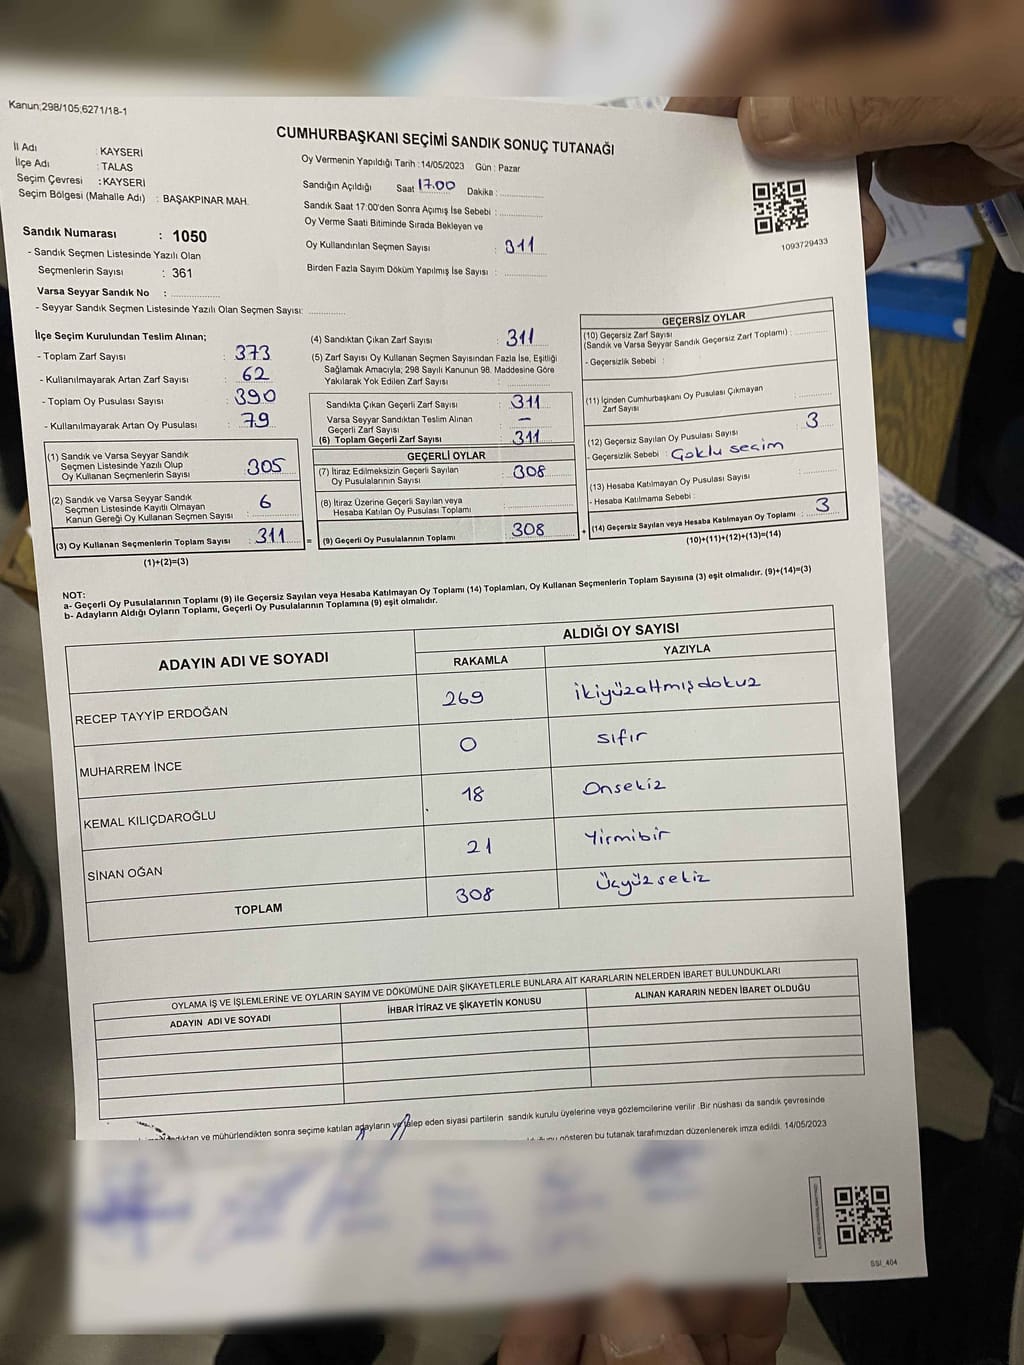 Kanun;298/105;6271/18-1
CUMHURBAŞKANI SEÇİMİ SANDIK SONUÇ TUTANAĞI
İl Adı : KAYSERİ
İlçe Adı : TALAS
Seçim Çevresi : KAYSERİ
Seçim Bölgesi (Mahalle Adı) : BAŞAKPINAR MAH.
Oy Vermenin Yapıldığı Tarih : 14/05/2023 Gün : Pazar
Sandığın Açıldığı Saat 17.00 Dakika :
Sandık Saat 17:00'den Sonra Açımış İse Sebebi :
Oy Verme Saati Bitiminde Sırada Bekleyen ve
Oy Kullandırılan Seçmen Sayısı : 311
Birden Fazla Sayım Döküm Yapılmış İse Sayısı :
1093729433
Sandık Numarası : 1050
- Sandık Seçmen Listesinde Yazılı Olan
Seçmenlerin Sayısı : 361
Varsa Seyyar Sandık No :
- Seyyar Sandık Seçmen Listesinde Yazılı Olan Seçmen Sayısı:
İlçe Seçim Kurulundan Teslim Alınan;
- Toplam Zarf Sayısı : 373
- Kullanılmayarak Artan Zarf Sayısı : 62
- Toplam Oy Pusulası Sayısı : 390
- Kullanılmayarak Artan Oy Pusulası : 79
(1) Sandık ve Varsa Seyyar Sandık
Seçmen Listesinde Yazılı Olup
Oy Kullanan Seçmenlerin Sayısı : 305
(2) Sandık ve Varsa Seyyar Sandık
Seçmen Listesinde Kayıtlı Olmayan
Kanun Gereği Oy Kullanan Seçmen Sayısı : 6
(3) Oy Kullanan Seçmenlerin Toplam Sayısı : 311
(1)+(2)=(3)
(4) Sandıktan Çıkan Zarf Sayısı : 311
(5) Zarf Sayısı Oy Kullanan Seçmen Sayısından Fazla İse, Eşitliği
Sağlamak Amacıyla; 298 Sayılı Kanunun 98. Maddesine Göre
Yakılarak Yok Edilen Zarf Sayısı :
Sandıkta Çıkan Geçerli Zarf Sayısı : 311
Varsa Seyyar Sandıktan Teslim Alınan
Geçerli Zarf Sayısı : -
(6) Toplam Geçerli Zarf Sayısı : 311
GEÇERLİ OYLAR
(7) İtiraz Edilmeksizin Geçerli Sayılan
Oy Pusulalarının Sayısı : 308
(8) İtiraz Üzerine Geçerli Sayılan veya
Hesaba Katılan Oy Pusulası Toplamı :
= (9) Geçerli Oy Pusulalarının Toplamı : 308
GEÇERSİZ OYLAR
(10) Geçersiz Zarf Sayısı
(Sandık ve Varsa Seyyar Sandık Geçersiz Zarf Toplamı) :
- Geçersizlik Sebebi :
(11) İçinden Cumhurbaşkanı Oy Pusulası Çıkmayan
Zarf Sayısı :
(12) Geçersiz Sayılan Oy Pusulası Sayısı : 3
- Geçersizlik Sebebi : Çoklu seçim
(13) Hesaba Katılmayan Oy Pusulası Sayısı :
- Hesaba Katılmama Sebebi :
+ (14) Geçersiz Sayılan veya Hesaba Katılmayan Oy Toplamı : 3
(10)+(11)+(12)+(13)=(14)
NOT:
a- Geçerli Oy Pusulalarının Toplamı (9) ile Geçersiz Sayılan veya Hesaba Katılmayan Oy Toplamı (14) Toplamları, Oy Kullanan Seçmenlerin Toplam Sayısına (3) eşit olmalıdır. (9)+(14)=(3)
b- Adayların Aldığı Oyların Toplamı, Geçerli Oy Pusulalarının Toplamına (9) eşit olmalıdır.
ADAYIN ADI VE SOYADI ALDIĞI OY SAYISI
RAKAMLA YAZIYLA
RECEP TAYYİP ERDOĞAN 269 ikiyüzaltmışdokuz
MUHARREM İNCE 0 sıfır
KEMAL KILIÇDAROĞLU 18 Onsekiz
SİNAN OĞAN 21 Yirmibir
TOPLAM 308 Üçyüzsekiz
OYLAMA İŞ VE İŞLEMLERİNE VE OYLARIN SAYIM VE DÖKÜMÜNE DAİR ŞİKAYETLERLE BUNLARA AİT KARARLARIN NELERDEN İBARET BULUNDUKLARI
ADAYIN ADI VE SOYADI İHBAR İTİRAZ VE ŞİKAYETİN KONUSU ALINAN KARARIN NEDEN İBARET OLDUĞU
ve mühürlendikten sonra seçime katılan adayların ve talep eden siyasi partilerin sandık kurulu üyelerine veya gözlemcilerine verilir. Bir nüshası da sandık çevresinde
gösteren bu tutanak tarafımızdan düzenlenerek imza edildi. 14/05/2023
SSI_404